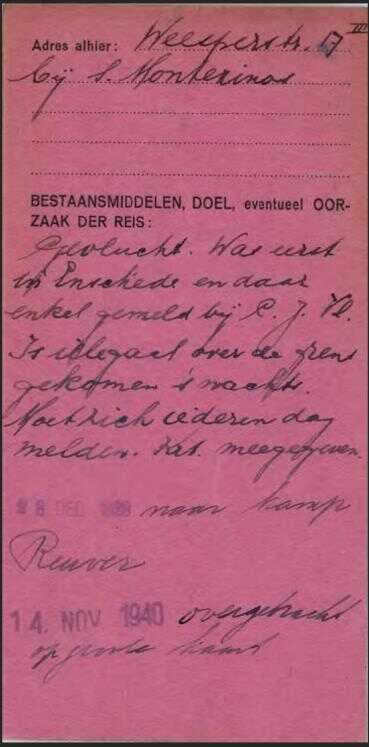 Adres alhier: Weesperstr. 17 III
bij S. Montezinos
BESTAANSMIDDELEN, DOEL, eventueel OOR-
ZAAK DER REIS:
Gevlucht. Was eerst
in Enschede en daar
enkel gemeld bij C. J. Vl.
Is illegaal over de grens
gekomen 's nachts.
Moet zich iederen dag
melden. Krt. meegegeven.
28 DEC 1938 naar kamp
Reuver
14. NOV 1940 overgebracht
op groote kaart